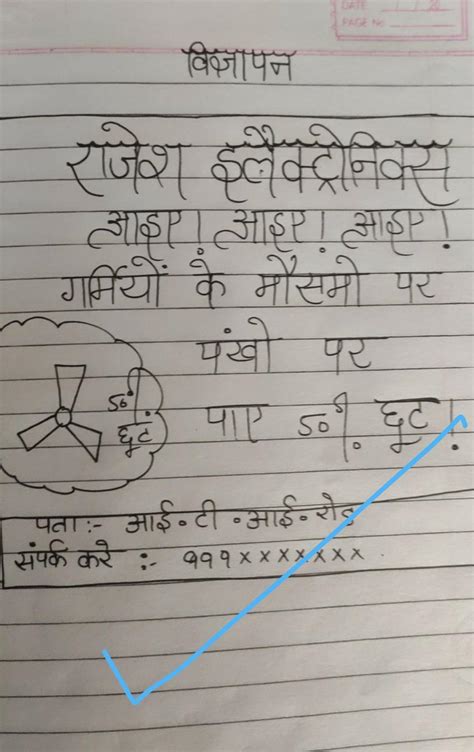 DATE 20
PAGE No
विज्ञापन
राजेश इलैक्ट्रोनिक्स
आइए! आइए! आइए!
गर्मियों के मौसमो पर
पंखो पर
50% छूट
पाए 50% छूट!
पता :- आई॰टी॰आई॰रोड
संपर्क करे :- १११xxxxxxx